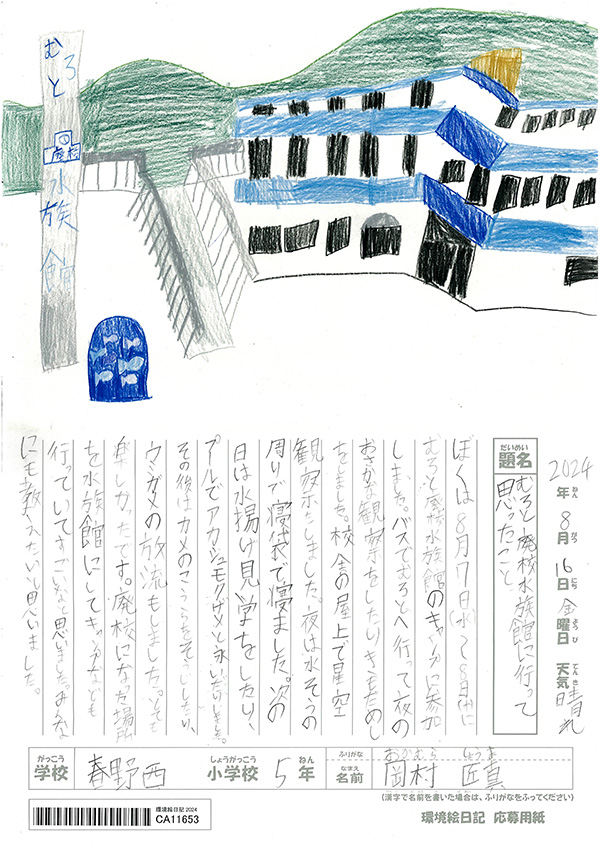 むろと
廃校
水族館
2024年8月16日金曜日 天気 晴れ
ねん
がつ
にち
ようび
てんき
だいめい
題名
むろと廃校水族館に行って
思ったこと
ぼくは8月7日(水)~8日(木)に
むろと廃校水族館のキャンプに参加
しました。バスでむろとへ行って夜の
おさかな観察をしたりきもだめし
をしました。校舎の屋上で星空
観察をしました。夜は水そうの
周りで寝袋で寝ました。次の
日は水揚げ見学をしたり、
プールでアカシュモクザメと泳いだりしました。
その後はカメのこうらをそうじしたり、
ウミガメの放流もしました。とても
楽しかったです。廃校になった場所
を水族館にしてキャンプなども
行っていてすごいなと思いました。みんな
にも教えたいと思いました。
がっこう
学校
春野西
しょうがっこう
小学校
5
ねん
年
ふりがな
おかむら
なまえ
名前
岡村 匠真
(漢字で名前を書いた場合は、ふりがなをふってください)
環境絵日記2024
CA11653
環境絵日記 応募用紙